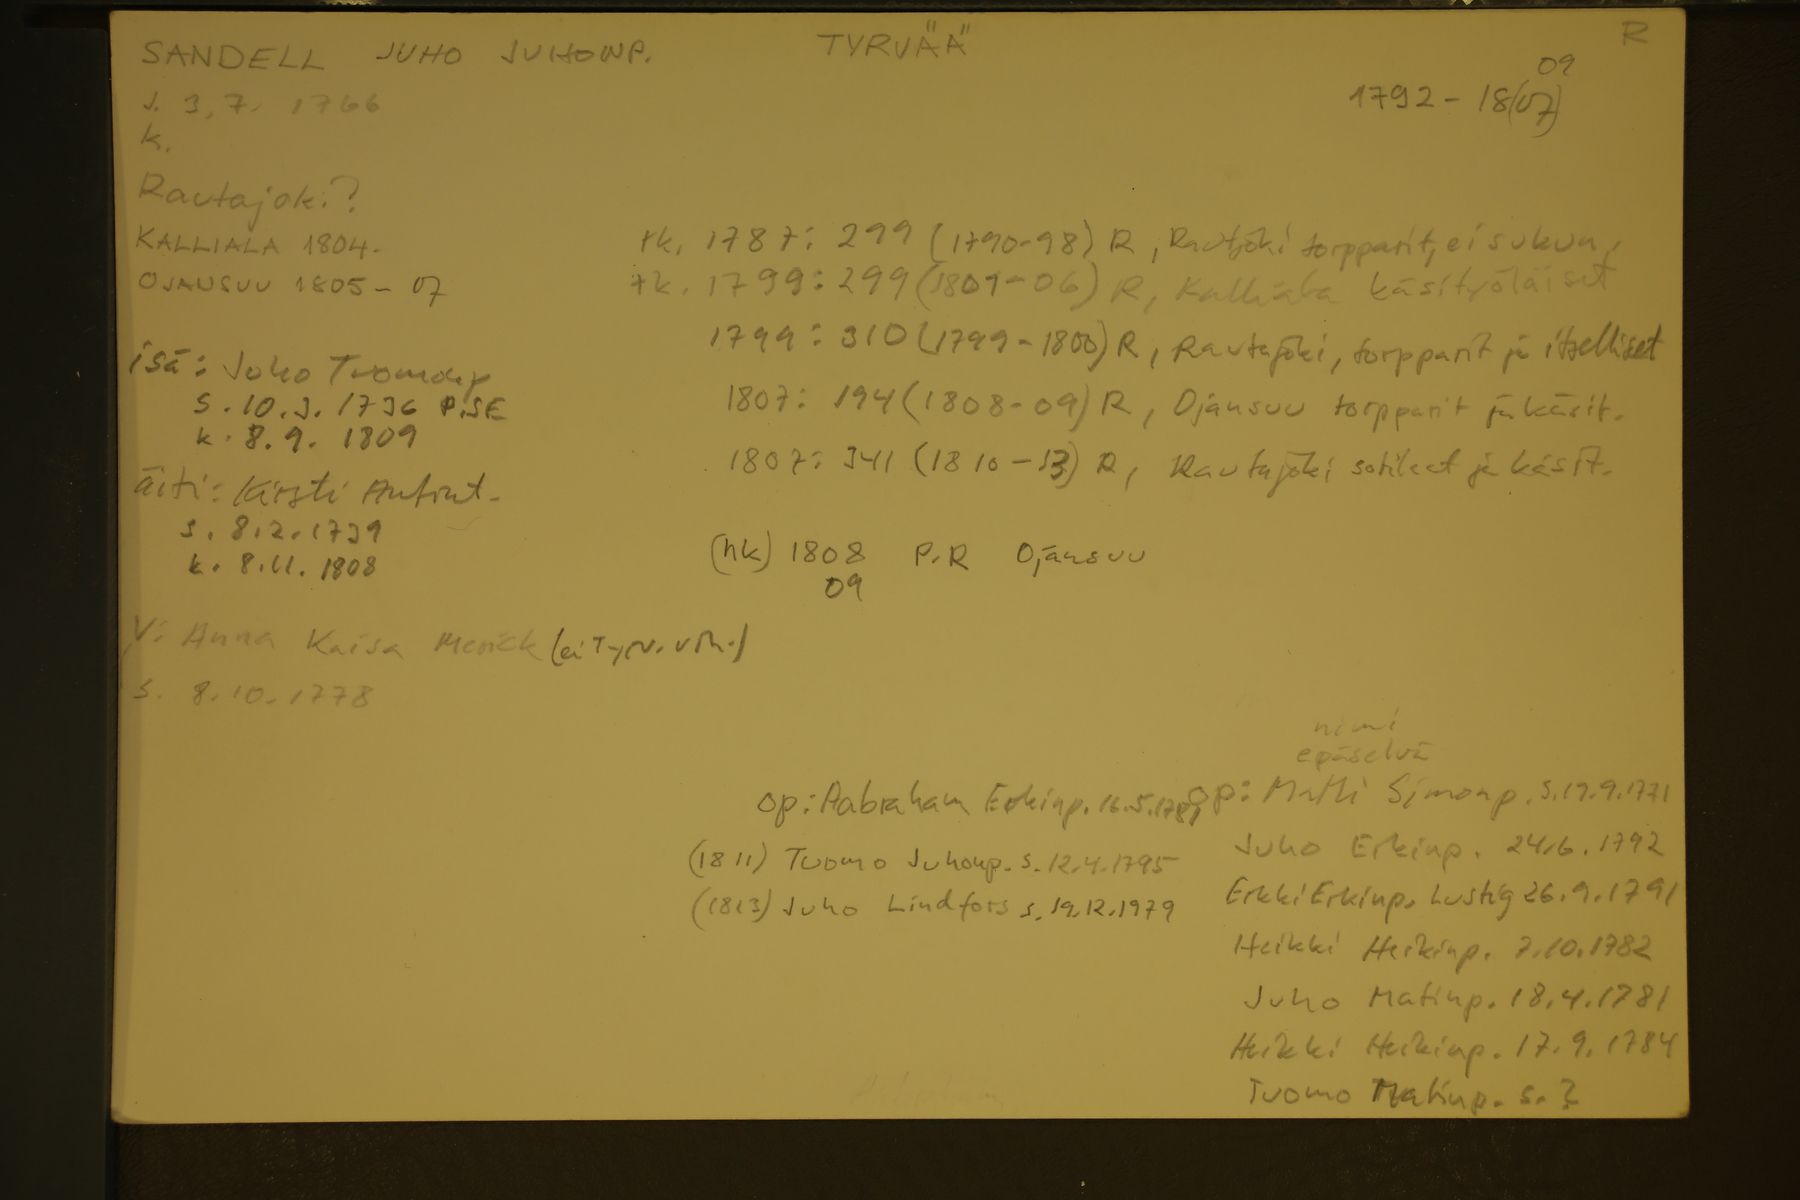 SANDELL JUHO JUHONP. TYRVÄÄ R
s. 3.7. 1766
k.
09
1792 - 18(07)
Rautajoki?
KALLIALA 1804-
OJANSUU 1805 - 07
rk. 1787: 299 (1790-98) R, Rautajoki torpparit, ei sukun.
rk. 1799: 299 (1801-06) R, Kalliala käsityöläiset
1799: 310 (1799-1800) R, Rautajoki, torpparit ja itselliset
1807: 194 (1808-09) R, Ojansuu torpparit ja käsit.
1807: 341 (1810-13) R, Rautajoki sotilaat ja käsit.
isä: Juho Tuomanp
s. 10.3. 1736 P.SE
k. 8.9. 1809
äiti: Kirsti Antint.
s. 8.2. 1739
k. 8.11. 1808
(hk) 1808 P.R Ojansuu
09
V: Anna Kaisa (ei Tyrv. vih.)
s. 8.10. 1778
op: Aabraham Erkinp. 16.5.1781
(1811) Tuomo Juhonp. s. 12.4.1795
(1813) Juho Lindfors s. 19.12.1979
nimi
epäselvä
op: Matti Simonp. s. 19.9.1771
Juho Erkinp. 24.6. 1792
Erkki Erkinp. Lustig 26.9.1791
Heikki Heikinp. 7.10.1782
Juho Matinp. 18.4.1781
Heikki Heikinp. 17.9. 1784
Tuomo Matinp. s. ?